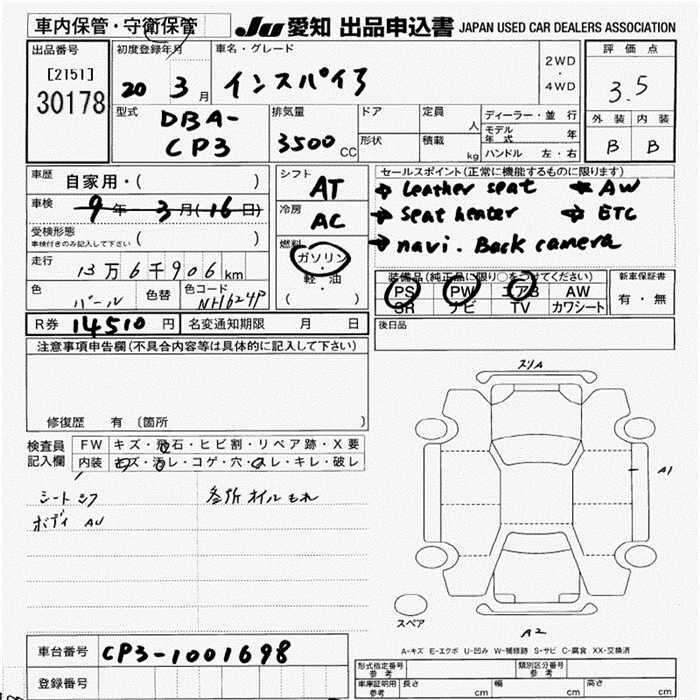 車内保管・守衛保管
JU 愛知 出品申込書 JAPAN USED CAR DEALERS ASSOCIATION
出品番号
[2151]
30178
初度登録年月
20 3月
車名・グレード
インスパイア
2WD
・
4WD
評価点
3.5
外装 内装
B B
型式
DBA-
CP3
排気量
3500 CC
ドア
形状
定員
人
積載
kg
ディーラー・並行
モデル年式 年
ハンドル 左・右
車歴
自家用・( )
車検
9年 3月(16日)
受検形態
車検付きのみ記入して下さい ( )
走行
13万6千906km
色
パール
色替
色コード
NH624P
シフト
AT
冷房
AC
燃料
ガソリン
軽油
( )
セールスポイント(正常に機能するものに限ります)
→ Leather seat → AW
→ Seat heater → ETC
→ navi. Back camera
装備品(純正品に限り○をつけてください)
PS PW エアB AW
SR ナビ TV カワシート
新車保証書
有・無
R券 14510円
名変通知期限 月 日
後日品
注意事項申告欄(不具合内容等は具体的に記入して下さい)
修復歴 有 〔箇所 〕
検査員
記入欄
FW キズ・飛石・ヒビ割・リペア跡・X要
内装 キズ・汚レ・コゲ・穴・スレ・キレ・破レ
シート シワ
ボディ AU
各所オイルもれ
スリA
A1
A2
スペア
A-キズ E-エクボ U-凹み W-補修跡 S-サビ C-腐食 XX-交換済
車台番号 CP3-1001698
登録番号
形式指定番号
類別区分番号
車庫証明用参考
長さ cm
幅 cm
参考
高さ cm